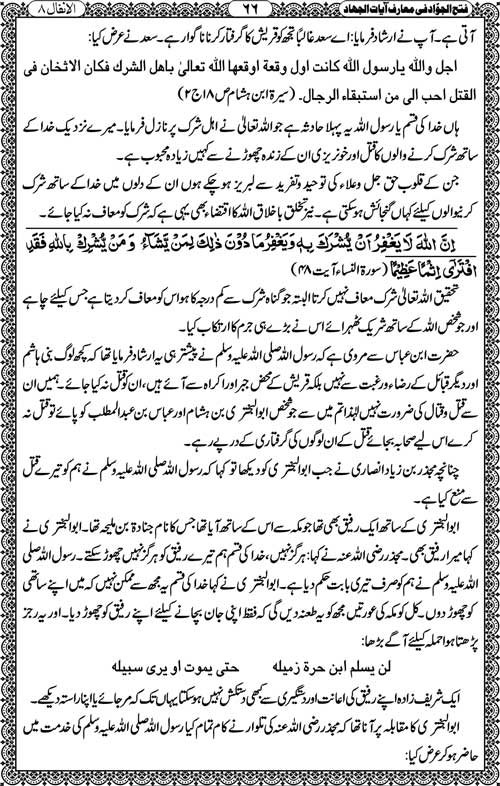 الانفال ۸
۶۶
فتح الجوّاد فی معارف آیات الجہاد
آتی ہے۔ آپ نے ارشاد فرمایا: اے سعد غالباً تجھ کو قریش کا گرفتار کرنا ناگوار ہے۔ سعد نے عرض کیا:
اجل والله یارسول الله کانت اول وقعة اوقعها الله تعالیٰ باهل الشرك فكان الاثخان فی
القتل احب الی من استبقاء الرجال. (سیرۃ ابن ہشام ص۱۸ج۲)
ہاں خدا کی قسم یا رسول اللہ یہ پہلا حادثہ ہے جو اللہ تعالیٰ نے اہل شرک پر نازل فرمایا۔ میرے نزدیک خدا کے
ساتھ شرک کرنے والوں کا قتل اور خونریزی ان کے زندہ چھوڑنے سے کہیں زیادہ محبوب ہے۔
جن کے قلوب حق جل وعلاء کی توحید وتفرید سے لبریز ہو چکے ہوں ان کے دلوں میں خدا کے ساتھ شرک
کرنیوالوں کیلئے کہاں گنجائش ہوسکتی ہے۔ نیز تخلق باخلاق اللہ کا اقتضاء بھی یہی ہے کہ شرک کو معاف نہ کیا جائے۔
اِنَّ اللّٰهَ لَا يَغْفِرُ اَنْ يُّشْرَكَ بِهٖ وَيَغْفِرُ مَا دُوْنَ ذٰلِكَ لِمَنْ يَّشَآءُ ۚ وَمَنْ يُّشْرِكْ بِاللّٰهِ فَقَدِ
افْتَرٰٓى اِثْمًا عَظِيْمًا (سورۃ النساء آیت ۴۸)
تحقیق اللہ تعالیٰ شرک معاف نہیں کرتا البتہ جو گناہ شرک سے کم درجہ کا ہو اس کو معاف کر دیتا ہے جس کیلئے چاہے
اور جو شخص اللہ کے ساتھ شریک ٹھہرائے اس نے بڑے ہی جرم کا ارتکاب کیا۔
حضرت ابن عباس سے مروی ہے کہ رسول اللہ صلی اللہ علیہ وسلم نے پیشتر ہی یہ ارشاد فرمایا تھا کہ کچھ لوگ بنی ہاشم
اور دیگر قبائل کے رضاء ورغبت سے نہیں بلکہ قریش کے محض جبر اور اکراہ سے آئے ہیں، ان کو قتل نہ کیا جائے۔ ہمیں ان
سے قتل وقتال کی ضرورت نہیں لہٰذا تم میں سے جو شخص ابوالبختری بن ہشام اور عباس بن عبدالمطلب کو پائے تو قتل نہ
کرے اس لیے صحابہ بجائے قتل کے ان لوگوں کی گرفتاری کے درپے رہے۔
چنانچہ مجذر بن زیاد انصاری نے جب ابوالبختری کو دیکھا تو کہا کہ رسول اللہ صلی اللہ علیہ وسلم نے ہم کو تیرے قتل
سے منع کیا ہے۔
ابوالبختری کے ساتھ ایک رفیق بھی تھا جو مکہ سے اس کے ساتھ آیا تھا جس کا نام جنادۃ بن ملیحہ تھا۔ ابوالبختری نے
کہا میرا رفیق بھی۔ مجذر رضی اللہ عنہ نے کہا: ہرگز نہیں، خدا کی قسم ہم تیرے رفیق کو ہرگز نہیں چھوڑ سکتے۔ رسول اللہ صلی
اللہ علیہ وسلم نے ہم کو صرف تیری بابت حکم دیا ہے۔ ابوالبختری نے کہا خدا کی قسم یہ مجھ سے ممکن نہیں کہ میں اپنے ساتھی
کو چھوڑ دوں۔ کل کو مکہ کی عورتیں مجھ کو یہ طعنہ دیں گی کہ فقط اپنی جان بچانے کیلئے اپنے رفیق کو چھوڑ دیا۔ اور یہ رجز
پڑھتا ہوا حملہ کیلئے آگے بڑھا:
لن یسلم ابن حرة زمیله حتی یموت او یری سبیله
ایک شریف زادہ اپنے رفیق کی اعانت اور دستگیری سے کبھی دستکش نہیں ہوسکتا یہاں تک کہ مر جائے یا اپنا راستہ دیکھے۔
ابوالبختری کا مقابلہ پر آنا تھا کہ مجذر رضی اللہ عنہ کی تلوار نے کام تمام کیا رسول اللہ صلی اللہ علیہ وسلم کی خدمت میں
حاضر ہو کر عرض کیا: